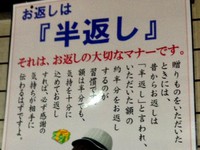 お返しは
『半返し』
それは、お返しの大切なマナーです。
贈りものをいただいた
ときには、
昔からお返しは
「半返し」と言われ、
約半分をお返し
するのが
習慣です。
いただいた額の
額は半分でも、
気持ちを十分に
こめてお返し
すれば、必ず感謝の
気持ちが相手に
伝わるはずですよ。